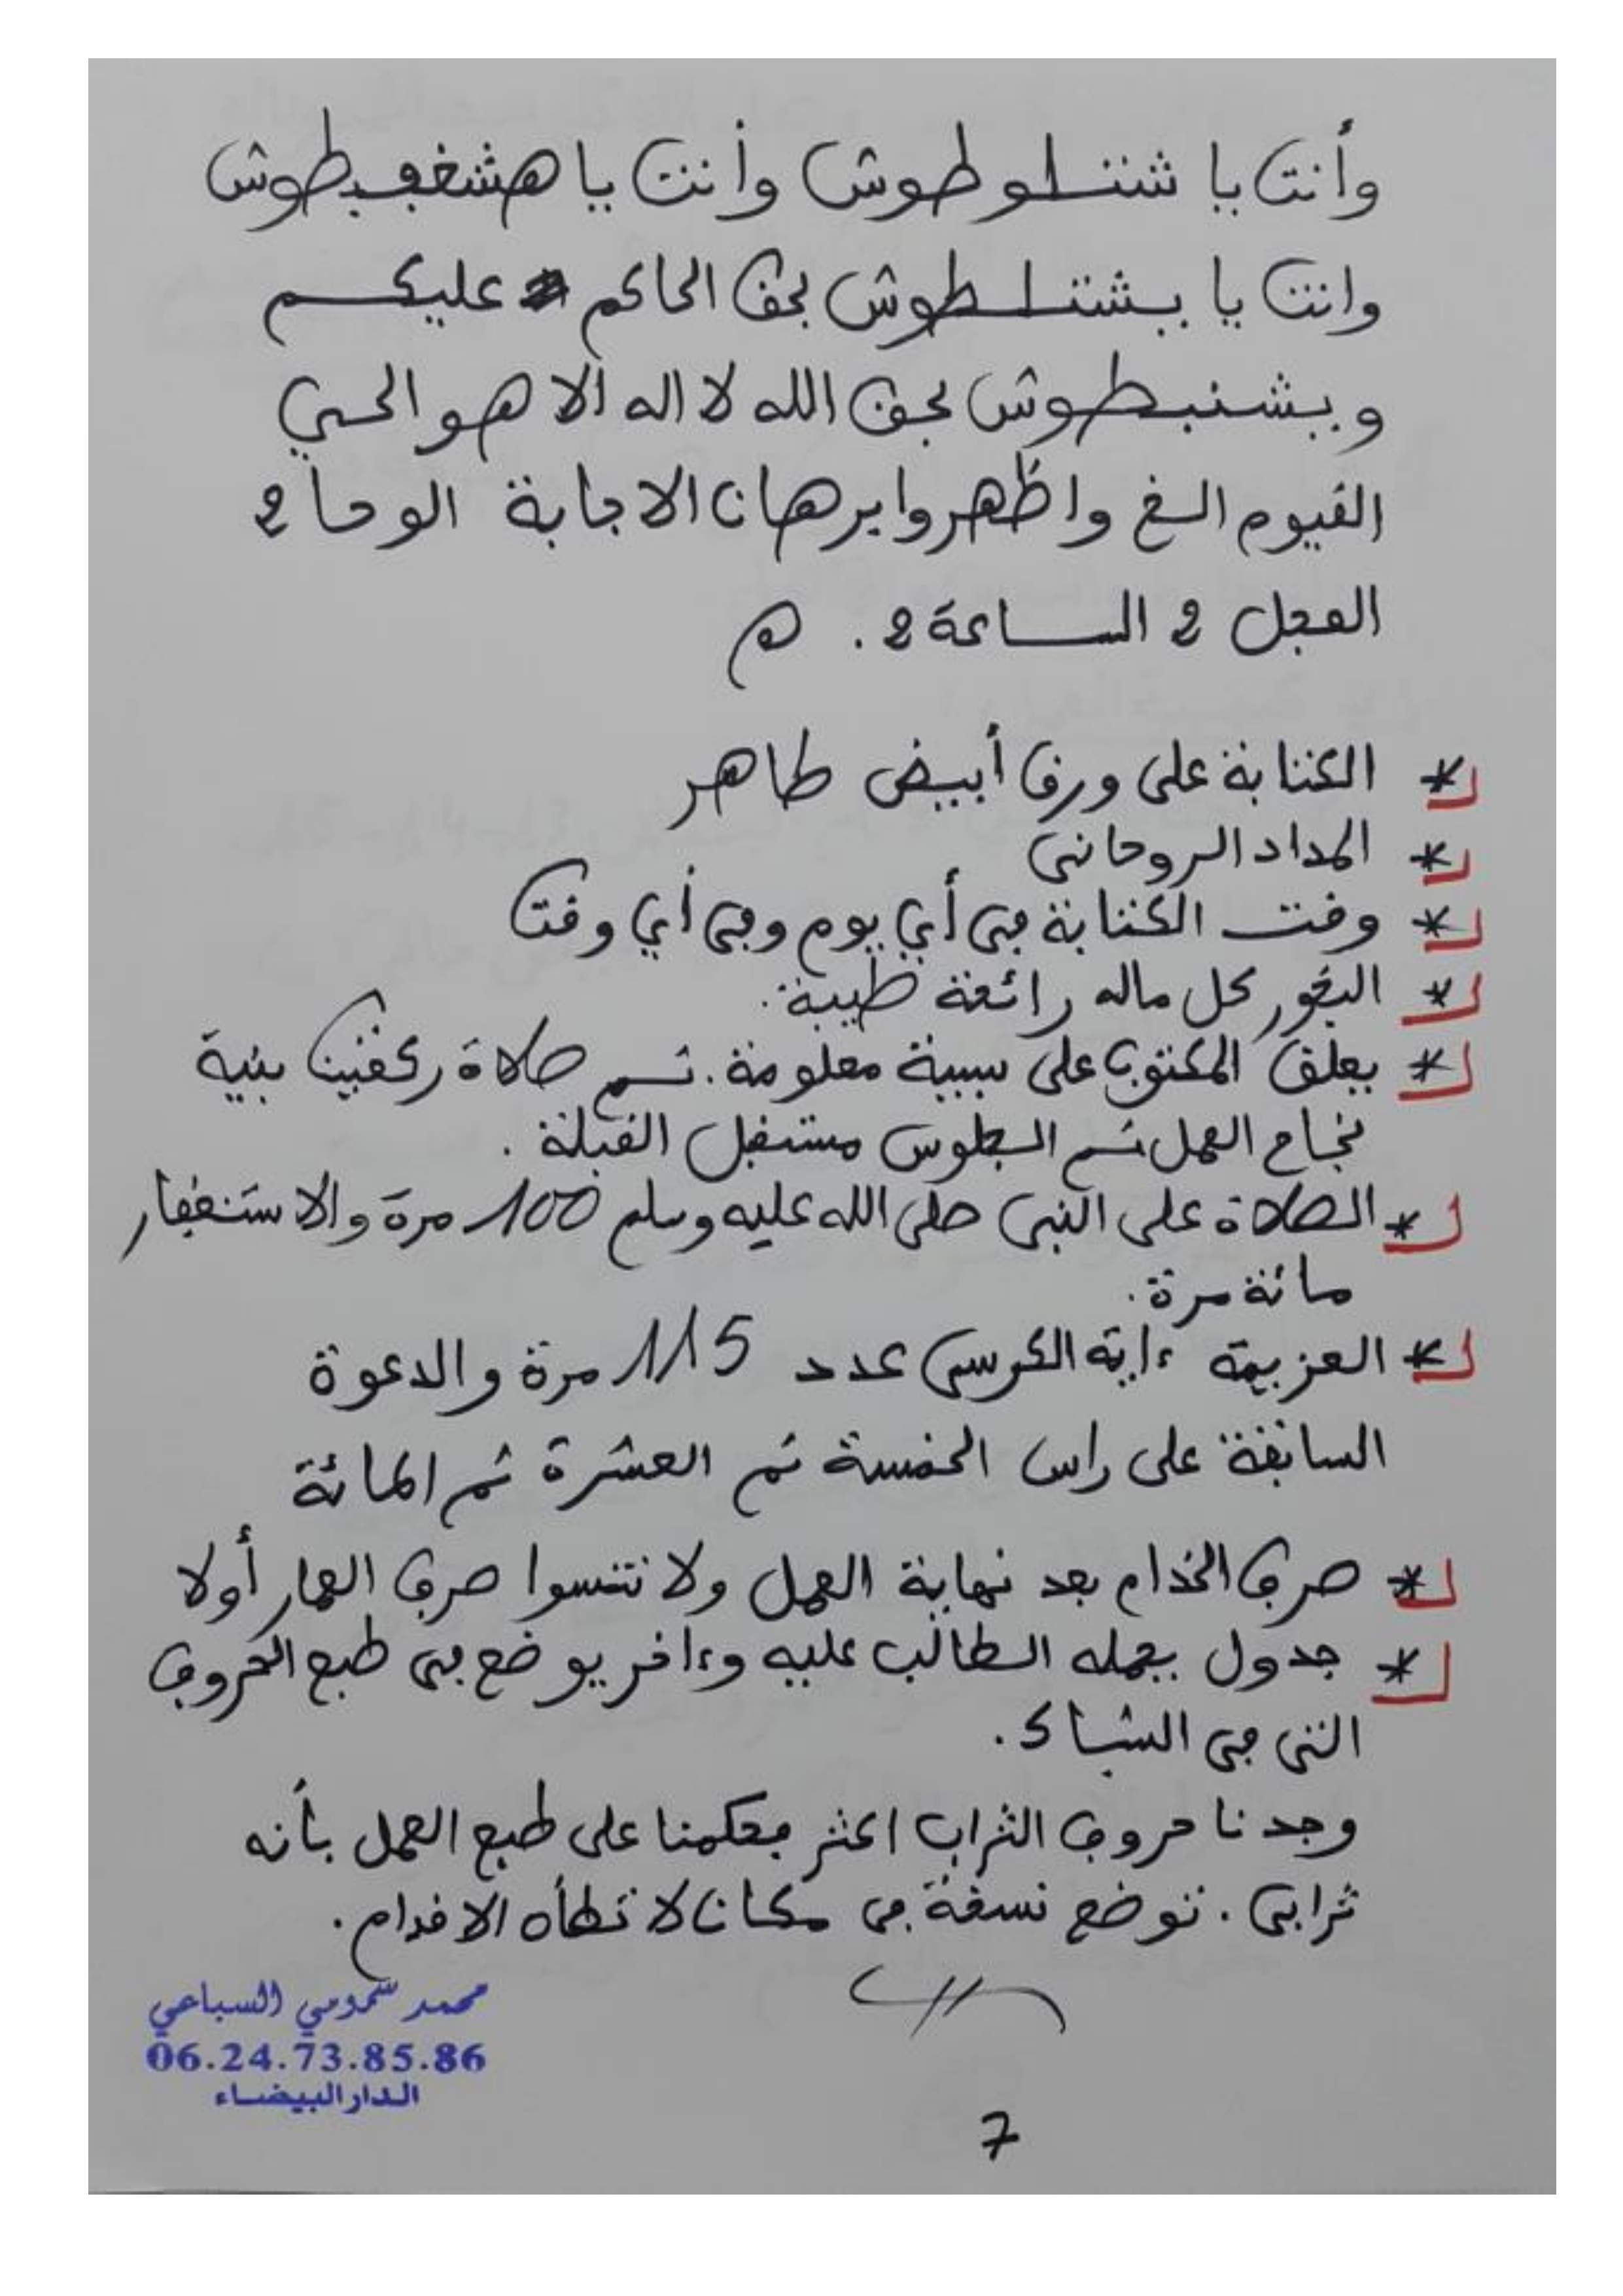 وأنت يا شتلوطوش وأنت يا هشغفيطوش
وانت يا بشتلطوش بحق الحاكم عليكم
وبشنبطوش بحق الله لا اله الا هو الحي
القيوم الخ واظهروا برهان الاجابة الوحا 2
العجل 2 الساعة 2 . ه
* الكتابة على ورق أبيض طاهر
* المداد الروحاني
* وقت الكتابة في أي يوم وفي أي وقت
* البخور كل ماله رائحة طيبة.
* يعلق المكتوب على سيبية معلومة. ثم صلاة ركعتين بنية
نجاح العمل ثم الجلوس مستقبل القبلة .
* الصلاة على النبي صلى الله عليه وسلم 100 مرة والاستغفار
مائة مرة.
* العزيمة ءاية الكرسي عدد 115 مرة والدعوة
السابقة على راس الخمسة ثم العشرة ثم المائة
* صرف الخدام بعد نهاية العمل ولا تنسوا صرف العمار أولا
* جدول يحمله الطالب عليه وءاخر يوضع في طبع الحروف
التي في الشباك.
وجدنا حروف التراب اكثر فحكمنا على طبع العمل بأنه
ترابي . توضع نسخة في مكان لا تطأه الاقدام.
محمد شمومي السباعي
06.24.73.85.86
الدار البيضاء
7